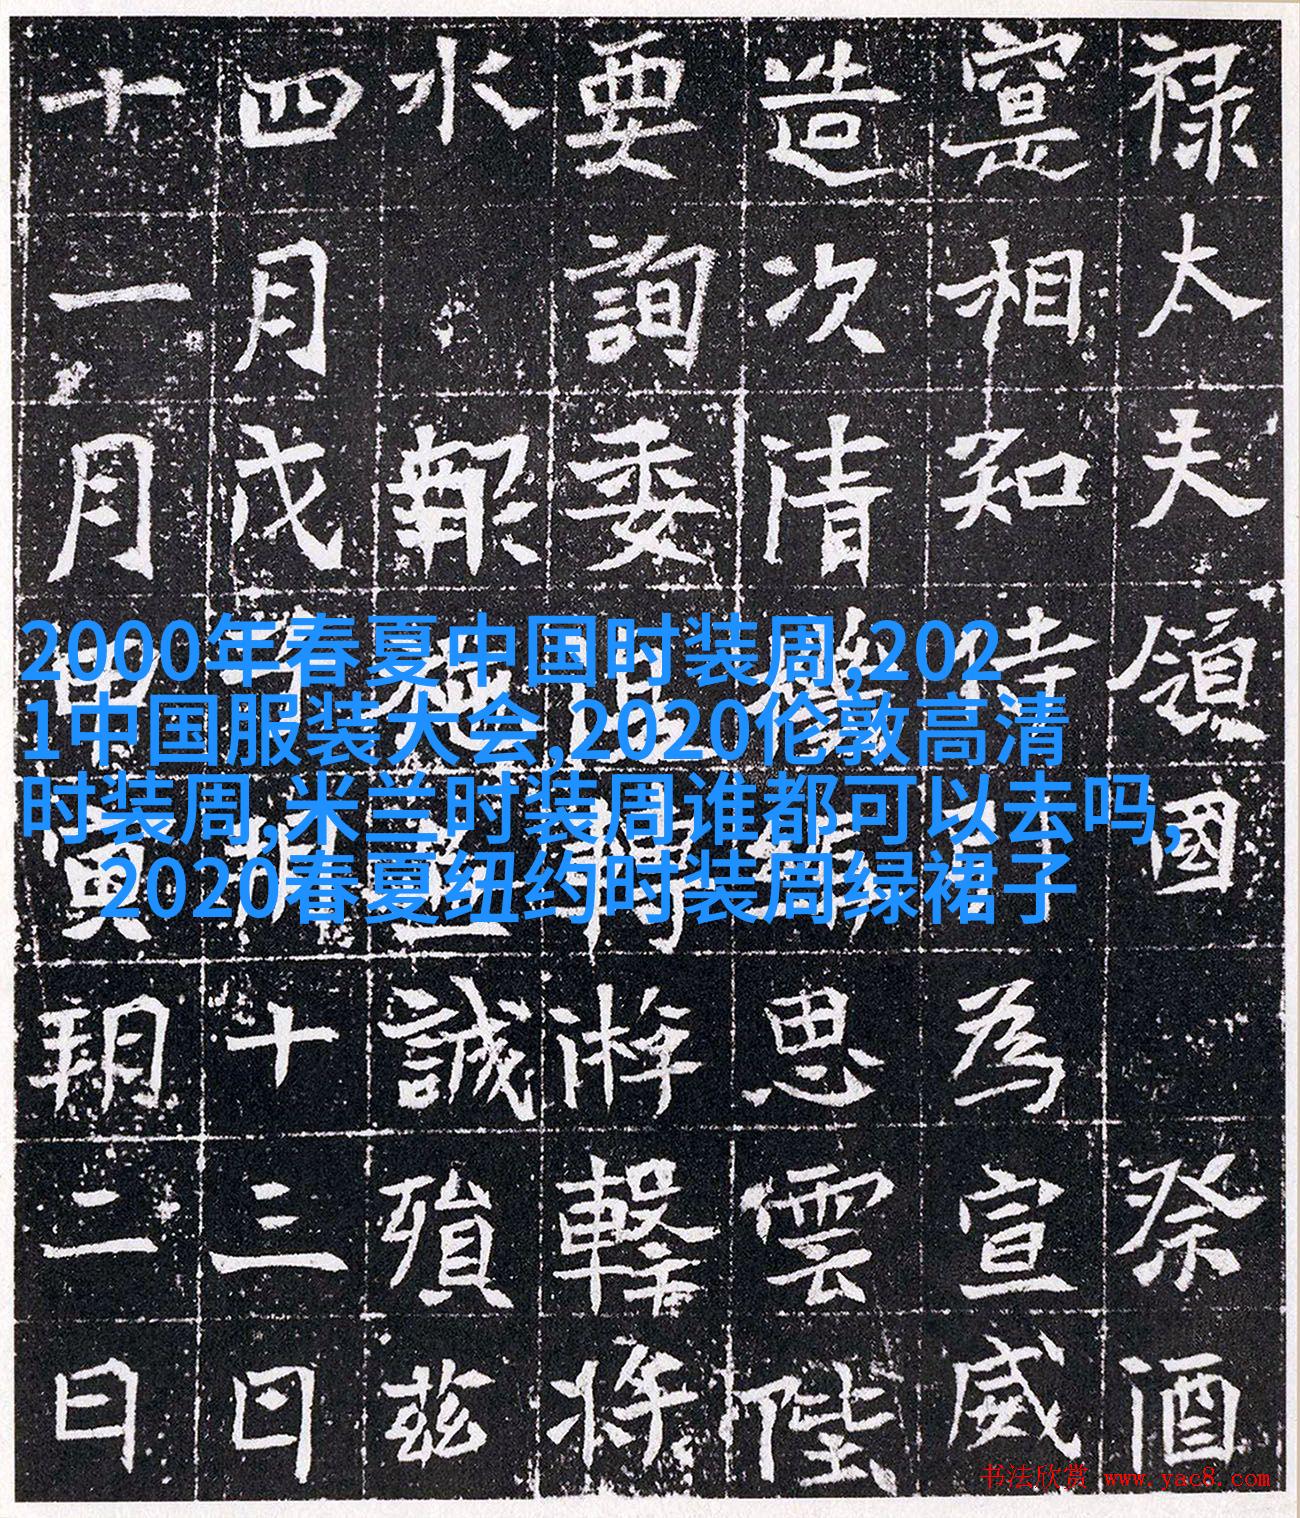 禄太夫領國祭酒
寔相知待為宣威
造次清思雲陛
要詢委游擊将
水報誠殞茲
四月戊十三日
十一月甲寅朔二日
2000年春夏中国时装周,202
1中国服装大会,2020伦敦高清
时装周,米兰时装周谁都可以去吗,
2020春夏纽约时装周绿裙子
书法欣赏 www.yac8.com